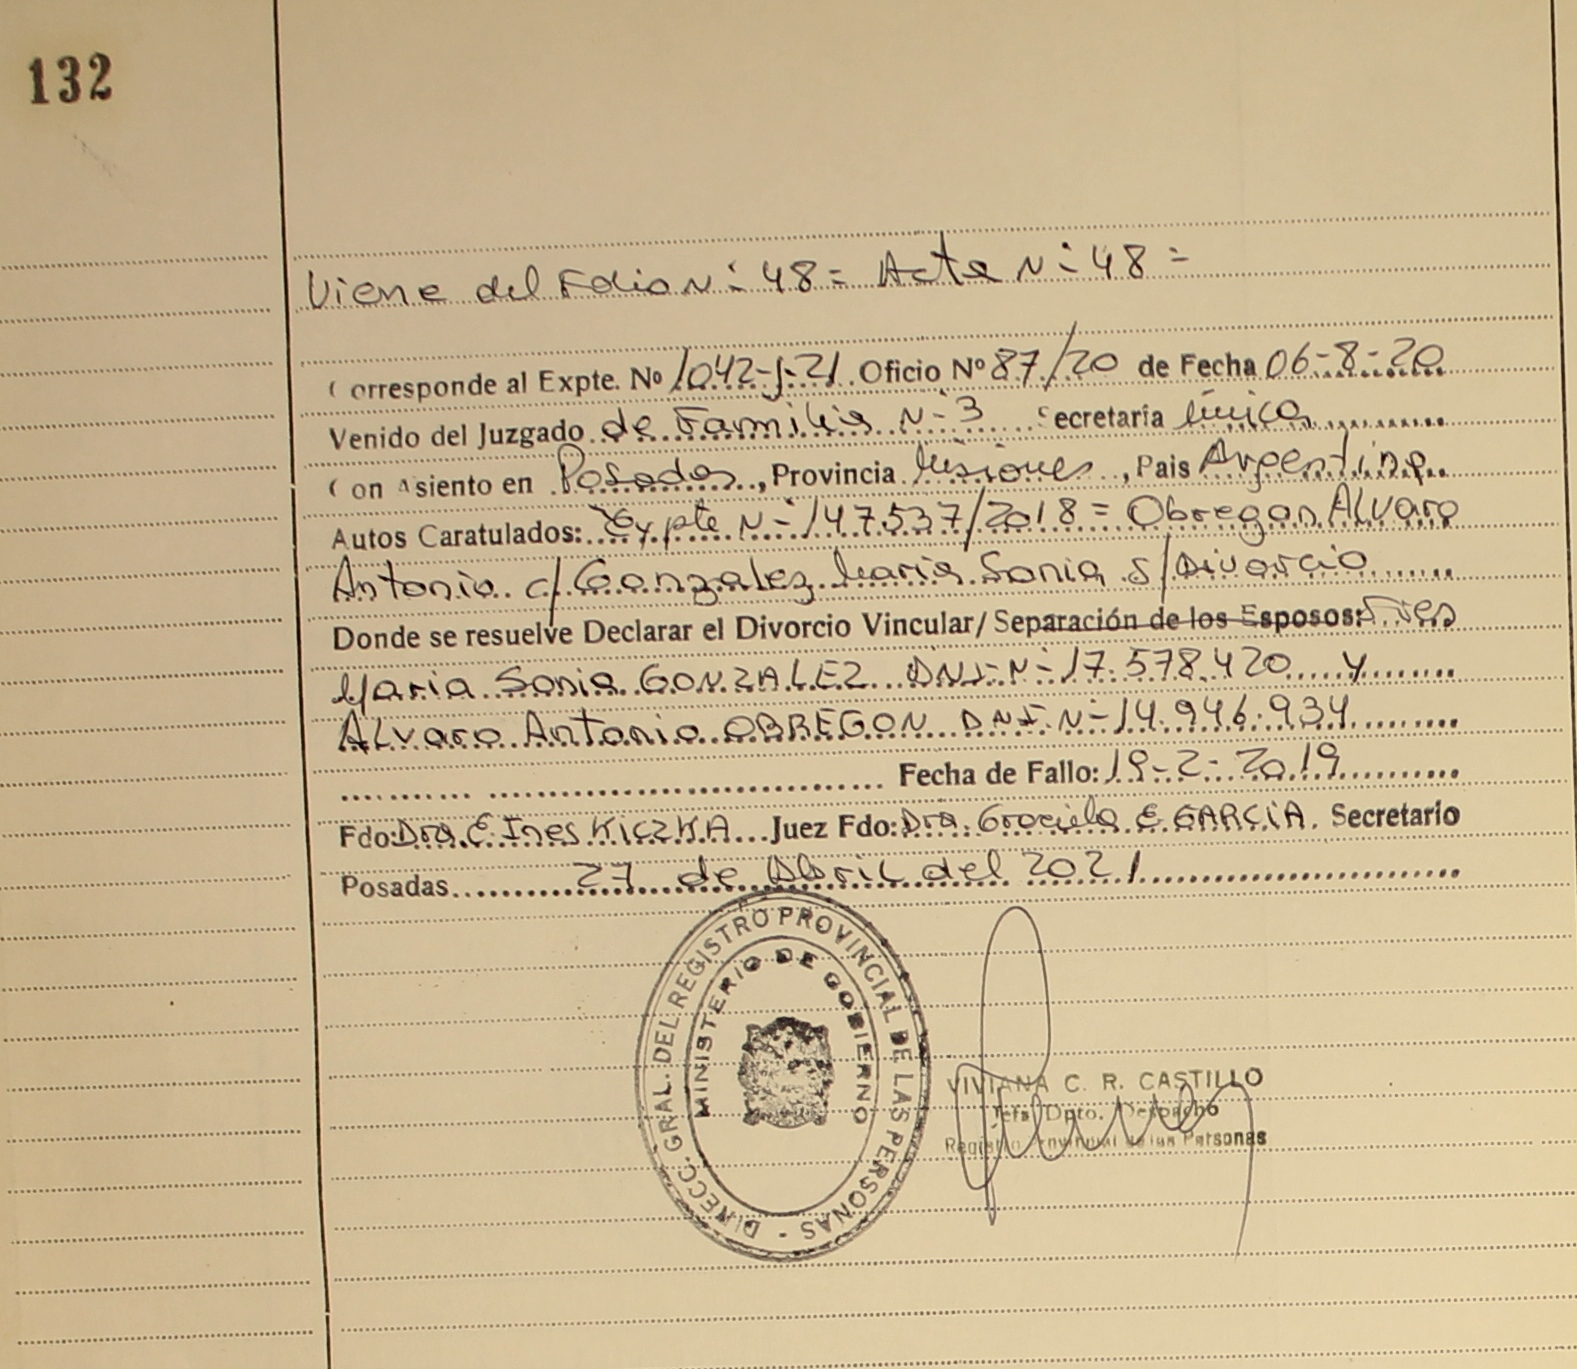 132
Viene del Folio Nº 48 = Acta Nº 48 =
Corresponde al Expte. Nº 1042-J-21 Oficio Nº 87/20 de Fecha 06-8-20
Venido del Juzgado de Familia Nº 3 Secretaría Única
Con Asiento en Posadas, Provincia Misiones, Pais Argentina
Autos Caratulados: Expte Nº 147.537/2018 = Obregon Alvaro
Antonio c/ Gonzalez Maria Sonia s/ Divorcio
Donde se resuelve Declarar el Divorcio Vincular/ Separación de los Esposos:
Maria Sonia GONZALEZ DNI Nº 17.578.420 y
Alvaro Antonio OBREGON DNI Nº 14.946.934
Fecha de Fallo: 19-2-2019
Fdo: Dra. E Ines KICZKA Juez Fdo: Dra. Graciela E GARCIA. Secretario
Posadas 27 de Abril del 2021
DIRECC. GRAL. DEL REGISTRO PROVINCIAL DE LAS PERSONAS -
MINISTERIO DE GOBIERNO
VIVIANA C. R. CASTILLO
Jefa Dpto. Despacho
Registro Provincial de las Personas